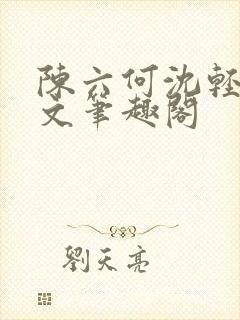 陳六何沈輕
文筆趣閣
劉天亮